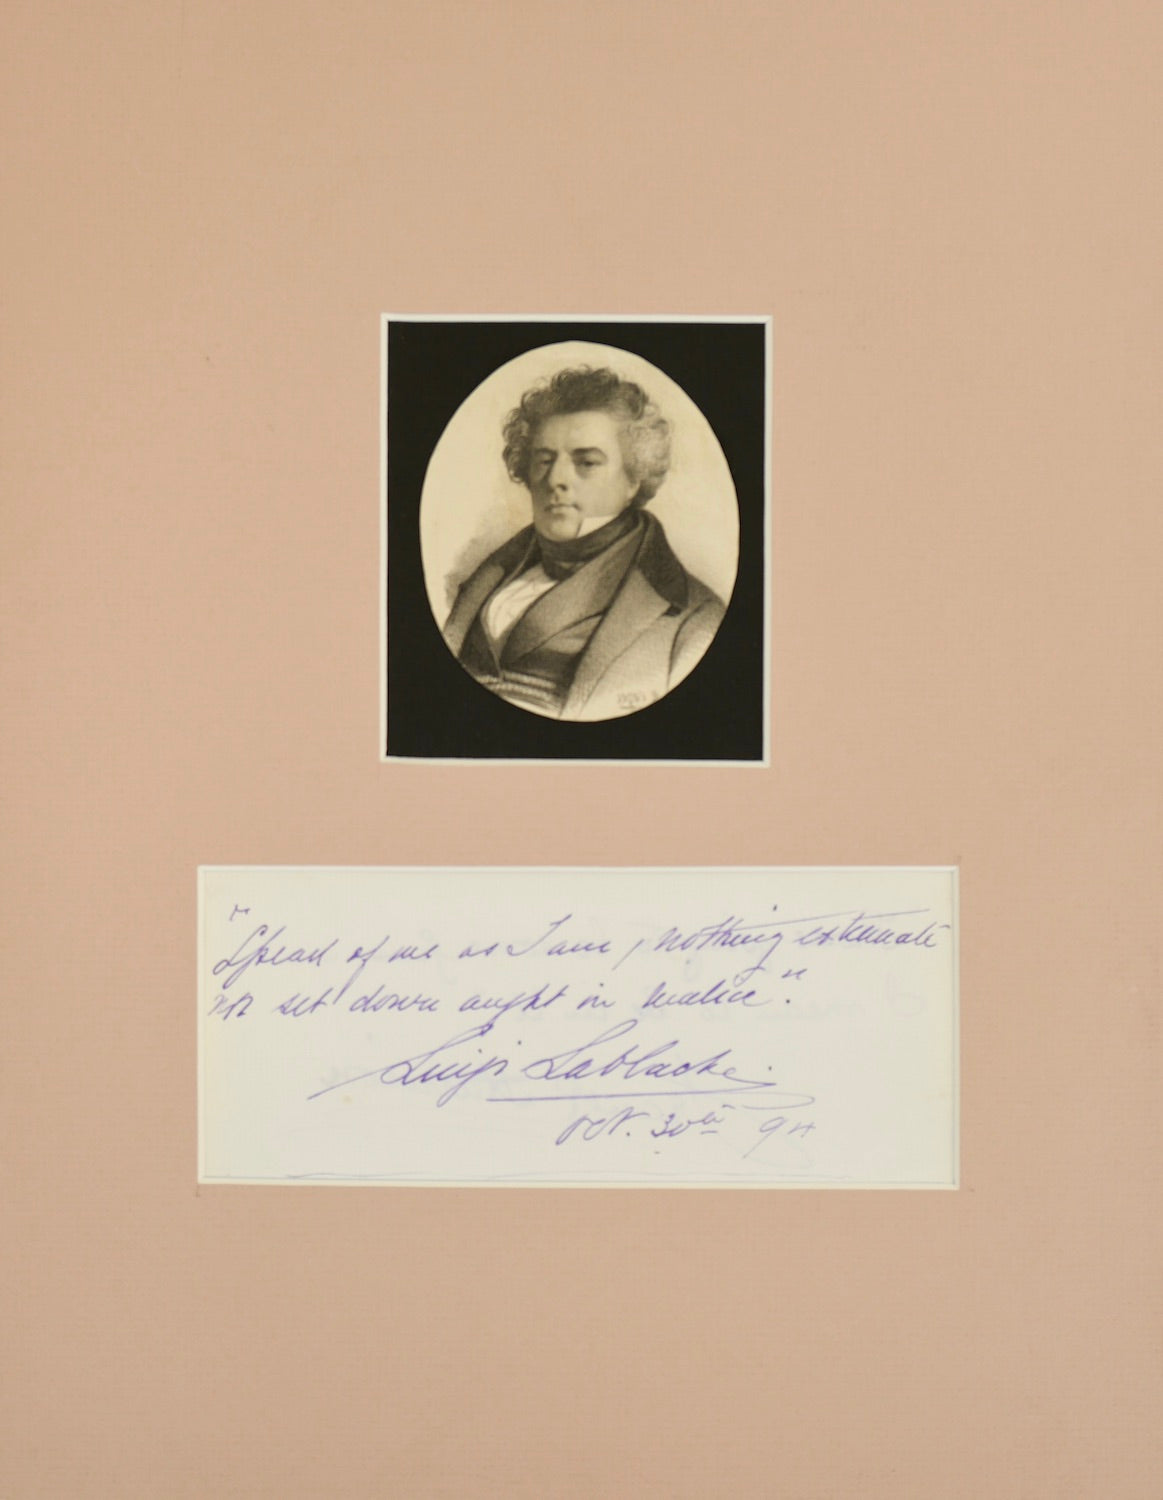 "Speak of me as I am, nothing extenuate
nor set down aught in malice".
Luigi Lablache.
Oct. 30th 94